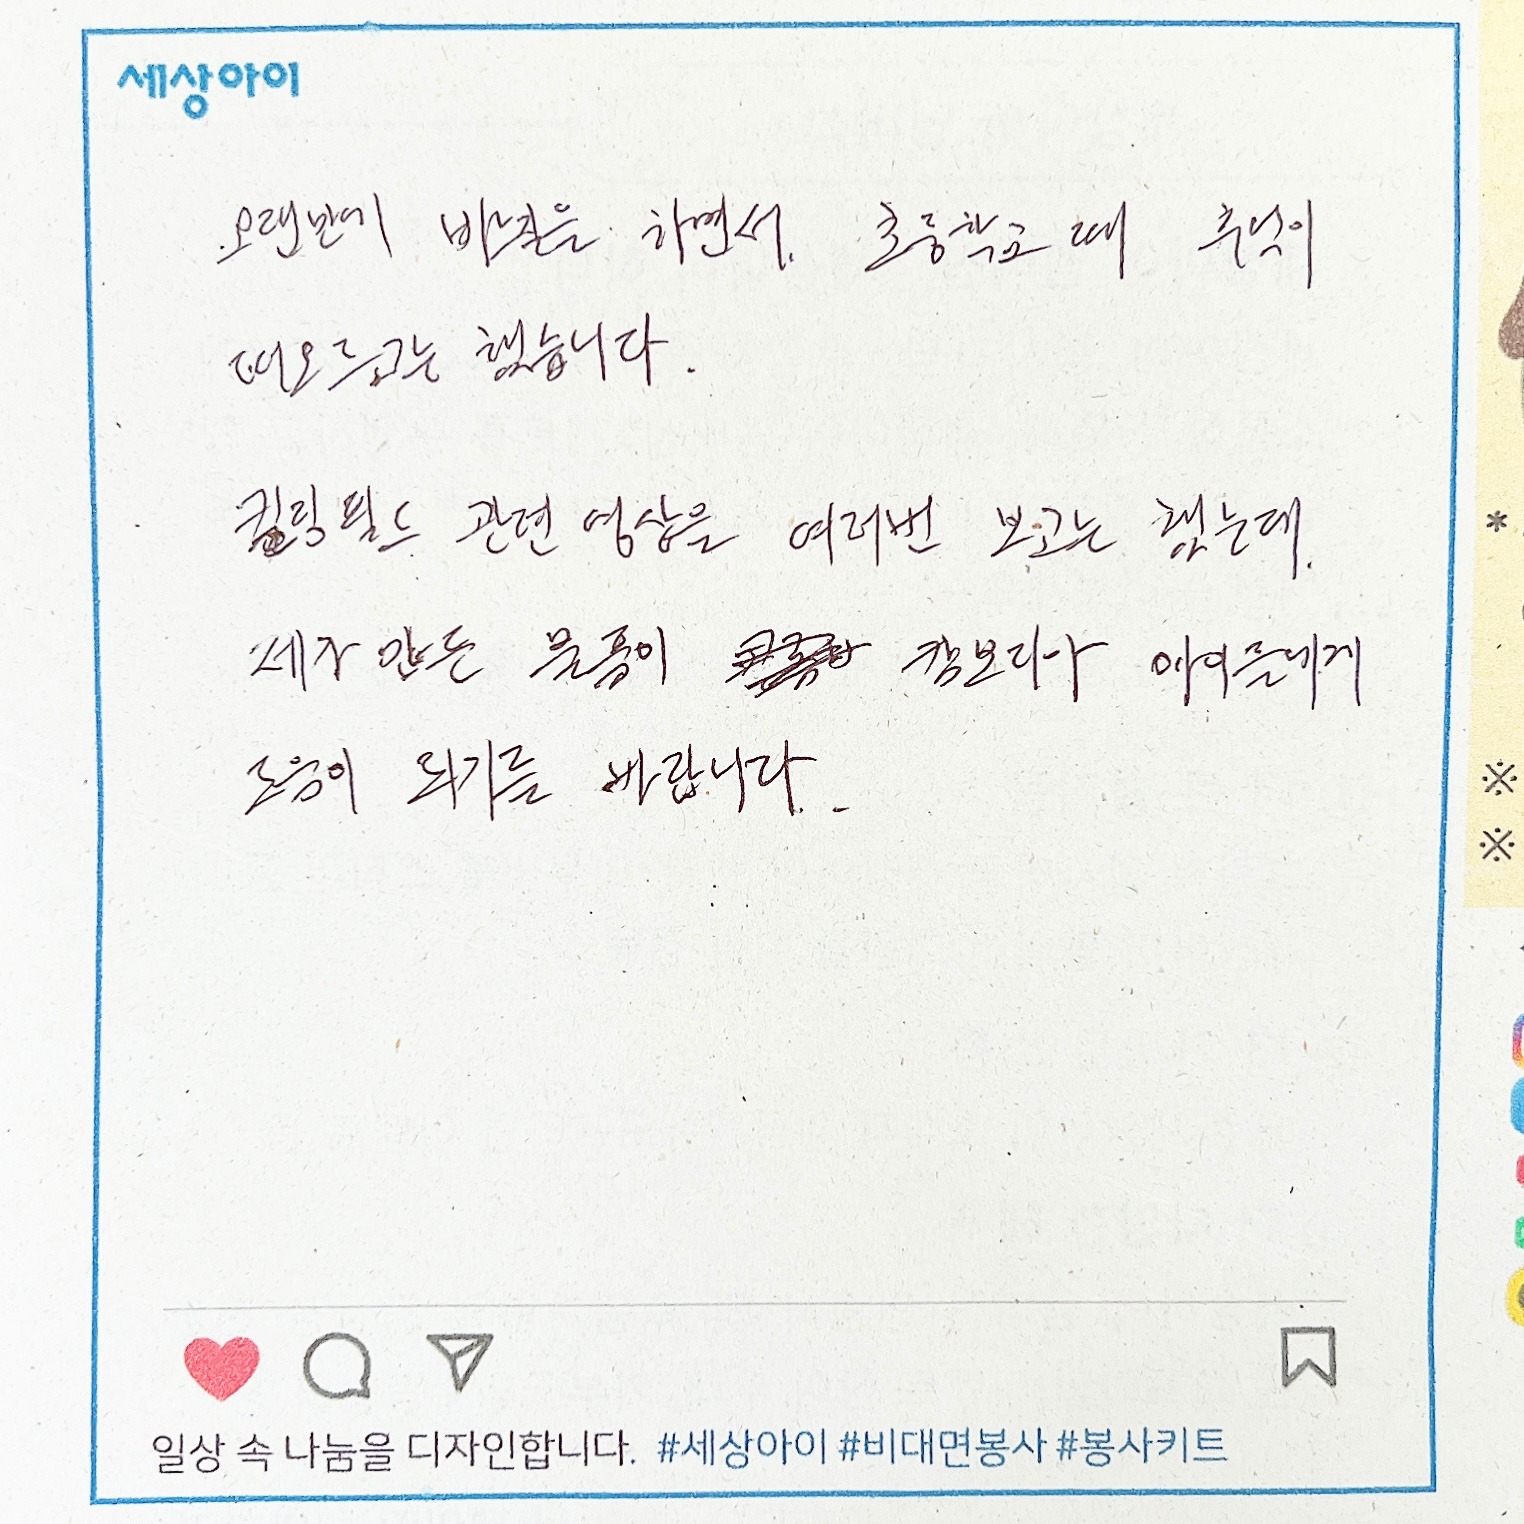 세상아이
오랜만에 바느질을 하면서. 초등학교 때 추억이
떠오르고는 했습니다.
킬링필드 관련 영상을 여러번 보고는 했는데.
제가 만든 물품이 캄보디아 아이들에게
도움이 되기를 바랍니다.
일상 속 나눔을 디자인합니다. #세상아이 #비대면봉사 #봉사키트
*
※
※